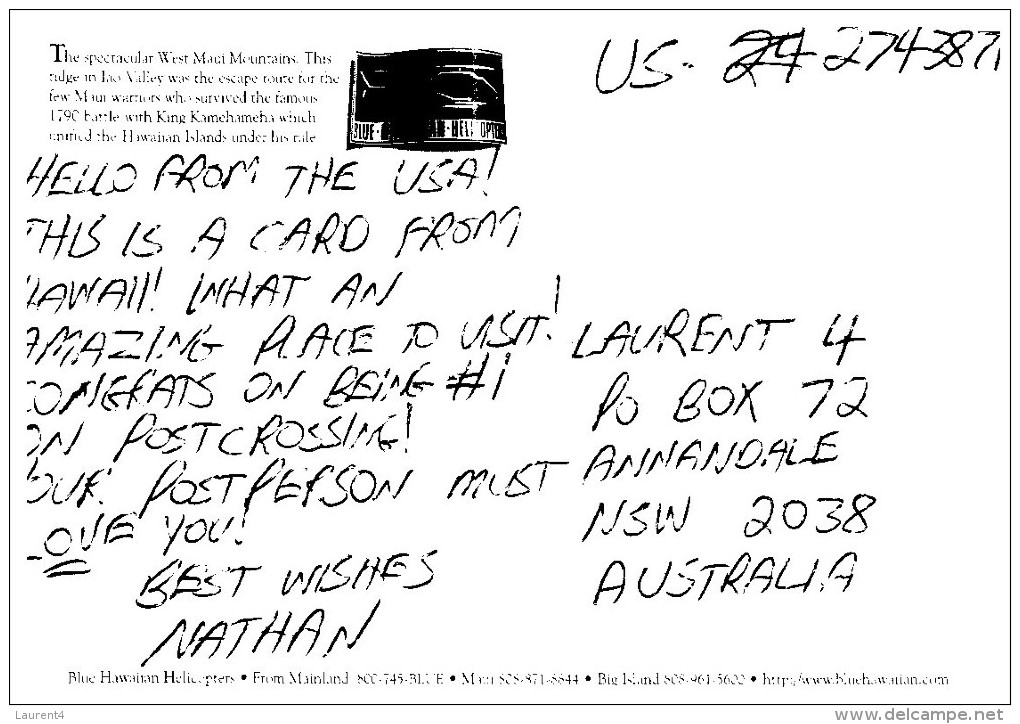 The spectacular West Maui Mountains. This
ridge in Iao Valley was the escape route for the
few Maui warriors who survived the famous
1790 battle with King Kamehameha which
unified the Hawaiian Islands under his rule
US- 2743871
HELLO FROM THE USA!
THIS IS A CARD FROM
HAWAII! WHAT AN
AMAZING PLACE TO VISIT!
CONGRATS ON BEING #1
ON POSTCROSSING!
YOUR POSTPERSON MUST
LOVE YOU!
BEST WISHES
NATHAN
LAURENT 4
PO BOX 72
ANNANDALE
NSW 2038
AUSTRALIA
Blue Hawaiian Helicopters • From Mainland 800-745-BLUE • Maui 808-871-8844 • Big Island 808-961-5600 • http://www.bluehawaiian.com
Laurent4
www.delcampe.net